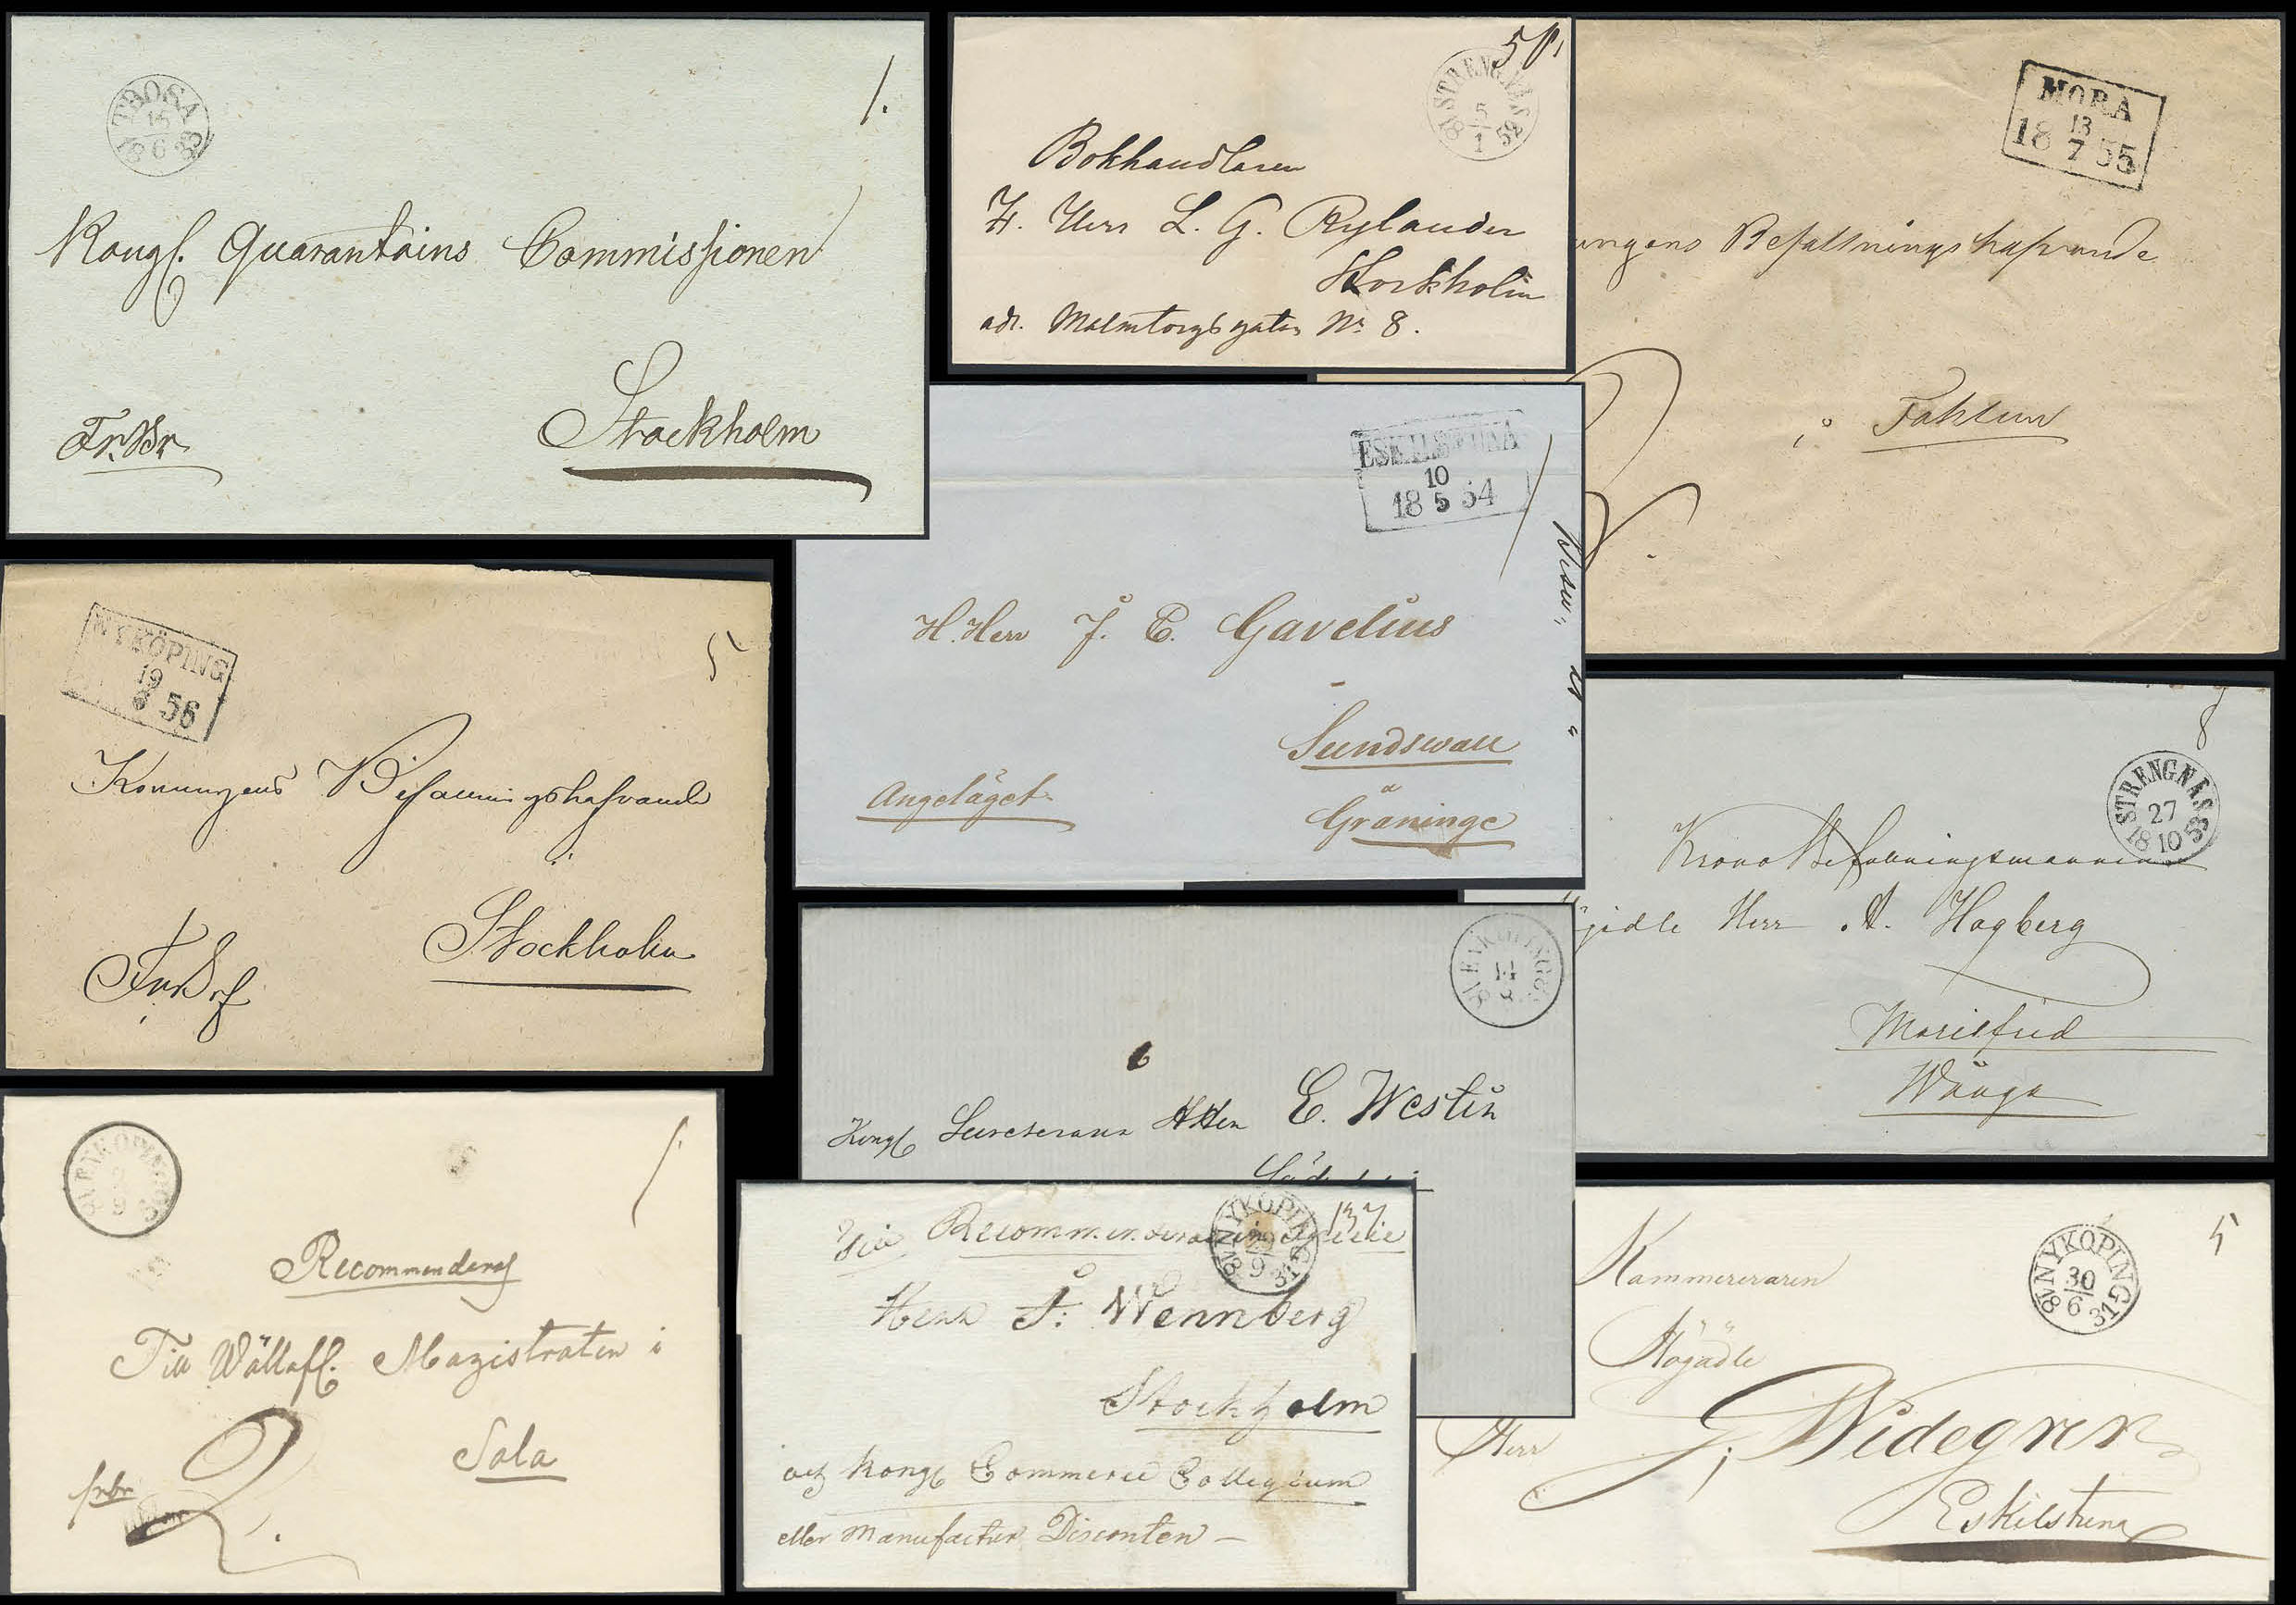 TROSA
15
18 6 33
1.
Kongl. Quarantains Commissionen
Fr.Br.
Stockholm
5
STRENGNÄS
5
18 1 52
Bokhandlaren
H. Herr L. G. Rylander
Stockholm
adr. Malmtorgsgatan No 8.
MORA
13
18 7 55
ungens Befallningshafvande
i Fahlun
ESKILSTUNA
10
18 5 54
H. Herr J. E. Gavelius
Sundswall
Angeläget
å
Graninge
NYKÖPING
19
56
5
Konungens Befallningshafvande
i
Stockholm
STRENGNÄS
27
18 10 53
8
Krono Befallningsmannen
Herr A. Hagberg
Mariefred
Wånga
ENKÖPING
14
8
6
Kongl Herr E. Westin
ENKÖPING
9
1.
Recommenderas
Till Wällofl. Magistraten i
Sala
frbr
2.
NYKÖPING
9
18 31
137
Herr J: Wennberg
Stockholm
Kongl Commerce Collegium
eller Manufactur Disconten –
NYKÖPING
30
18 6 31
5
Kammereraren
Högädle
Herr J; Widegren
Eskilstuna